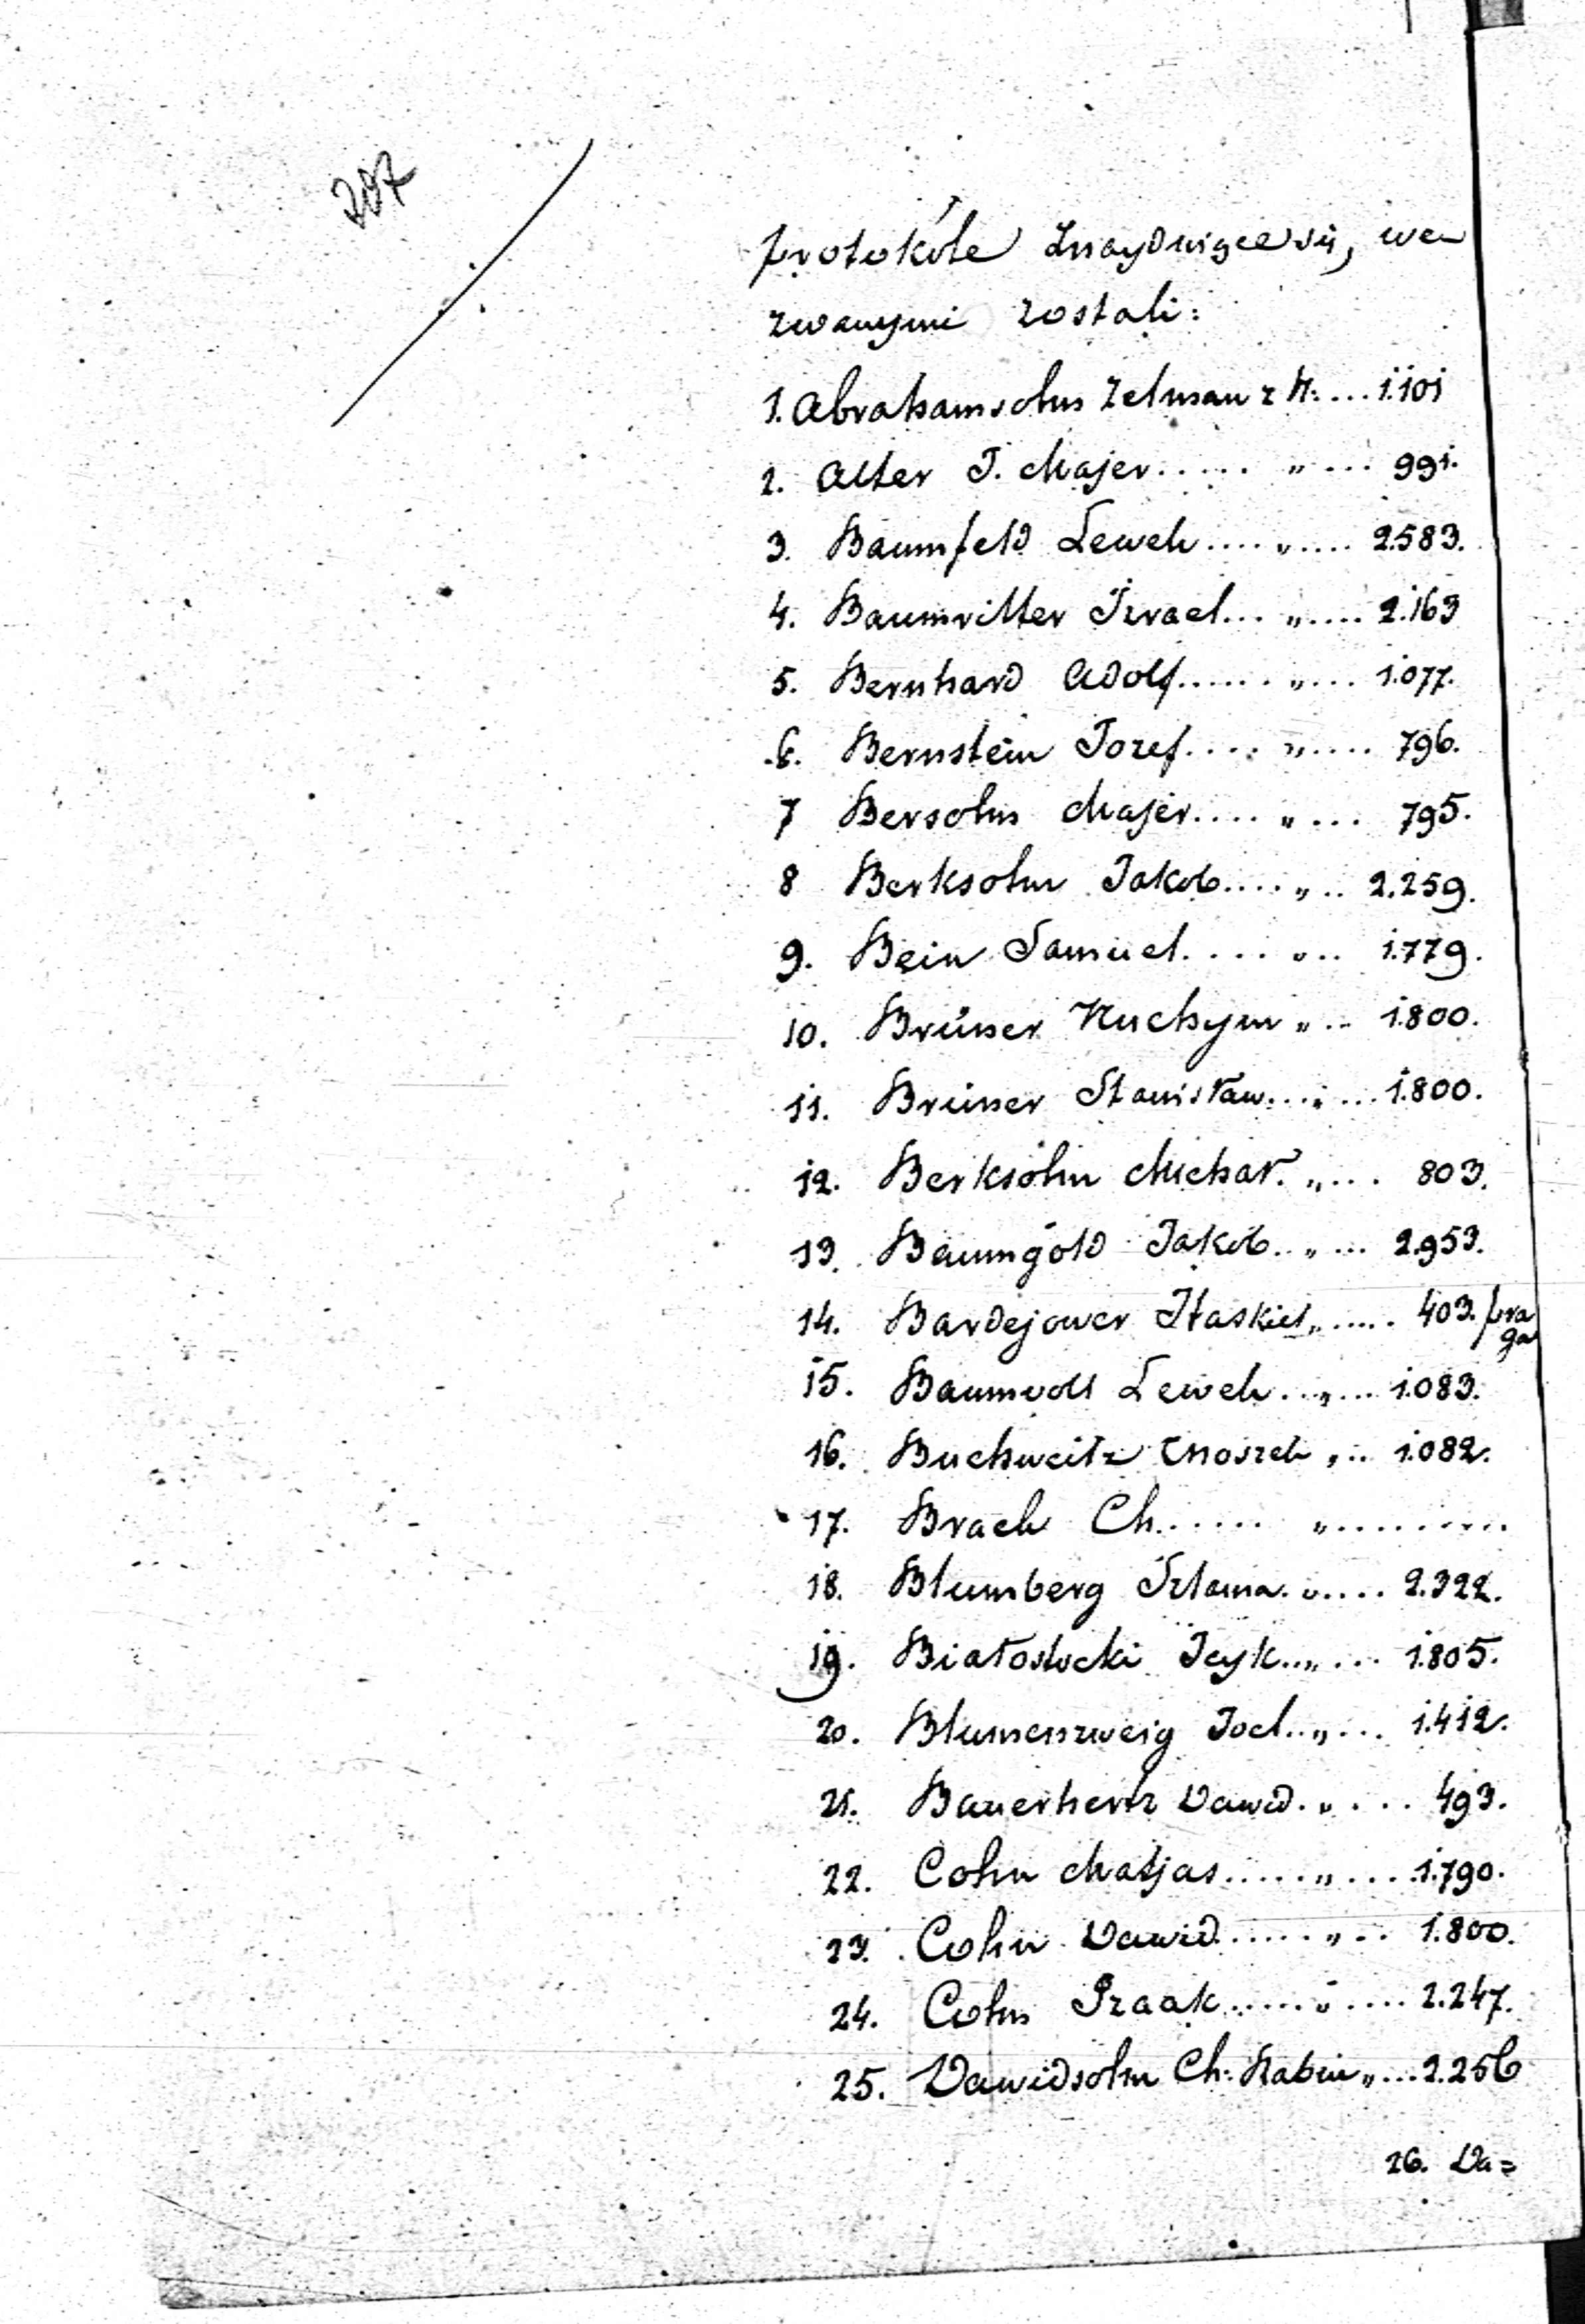 207
protokóle znaydujące się, we-
zwanymi zostali:
1. Abrahamsohn Zelman z N: .... 1.101
2. Alter J. Majer ..... „ ... 991.
3. Baumfeld Lewek .... „ .... 2.583.
4. Baumritter Izrael ... „ .... 2.163
5. Bernhard Adolf ...... „ ... 1.077.
6. Bernstein Jozef .... „ .... 796.
7 Bersohn Majer .... „ ... 795.
8 Berksohn Jakob .... „ .. 2.259.
9. Bein Samuel. .... „ .. 1.779.
10. Brüner Nuchym „ .. 1.800.
11. Brüner Stanisław ... „ ... 1.800.
12. Berksohn Michał. „ ... 803.
13. Baumgold Jakob .. „ ... 2.953.
14. Bardejower Haskiel „ ..... 403. praga
15. Baumwoll Lewek .. „ ... 1.083.
16. Buchweitz Moszek „ .. 1.082.
17. Brach Ch...... „ .........
18. Blumberg Szlama. „ .... 2.322.
19. Białostocki Icyk .. „ ... 1.805.
20. Blumenzweig Joel .. „ ... 1.412.
21. Bauerhertz Dawid. „ ... 493.
22. Cohn Matjas ..... „ .... 1.790.
23. Cohn Dawid ..... „ .. 1.800.
24. Cohn Izaak ..... „ .... 2.247.
25. Dawidsohn Ch: Rabin „ ... 2.256
26. Da=